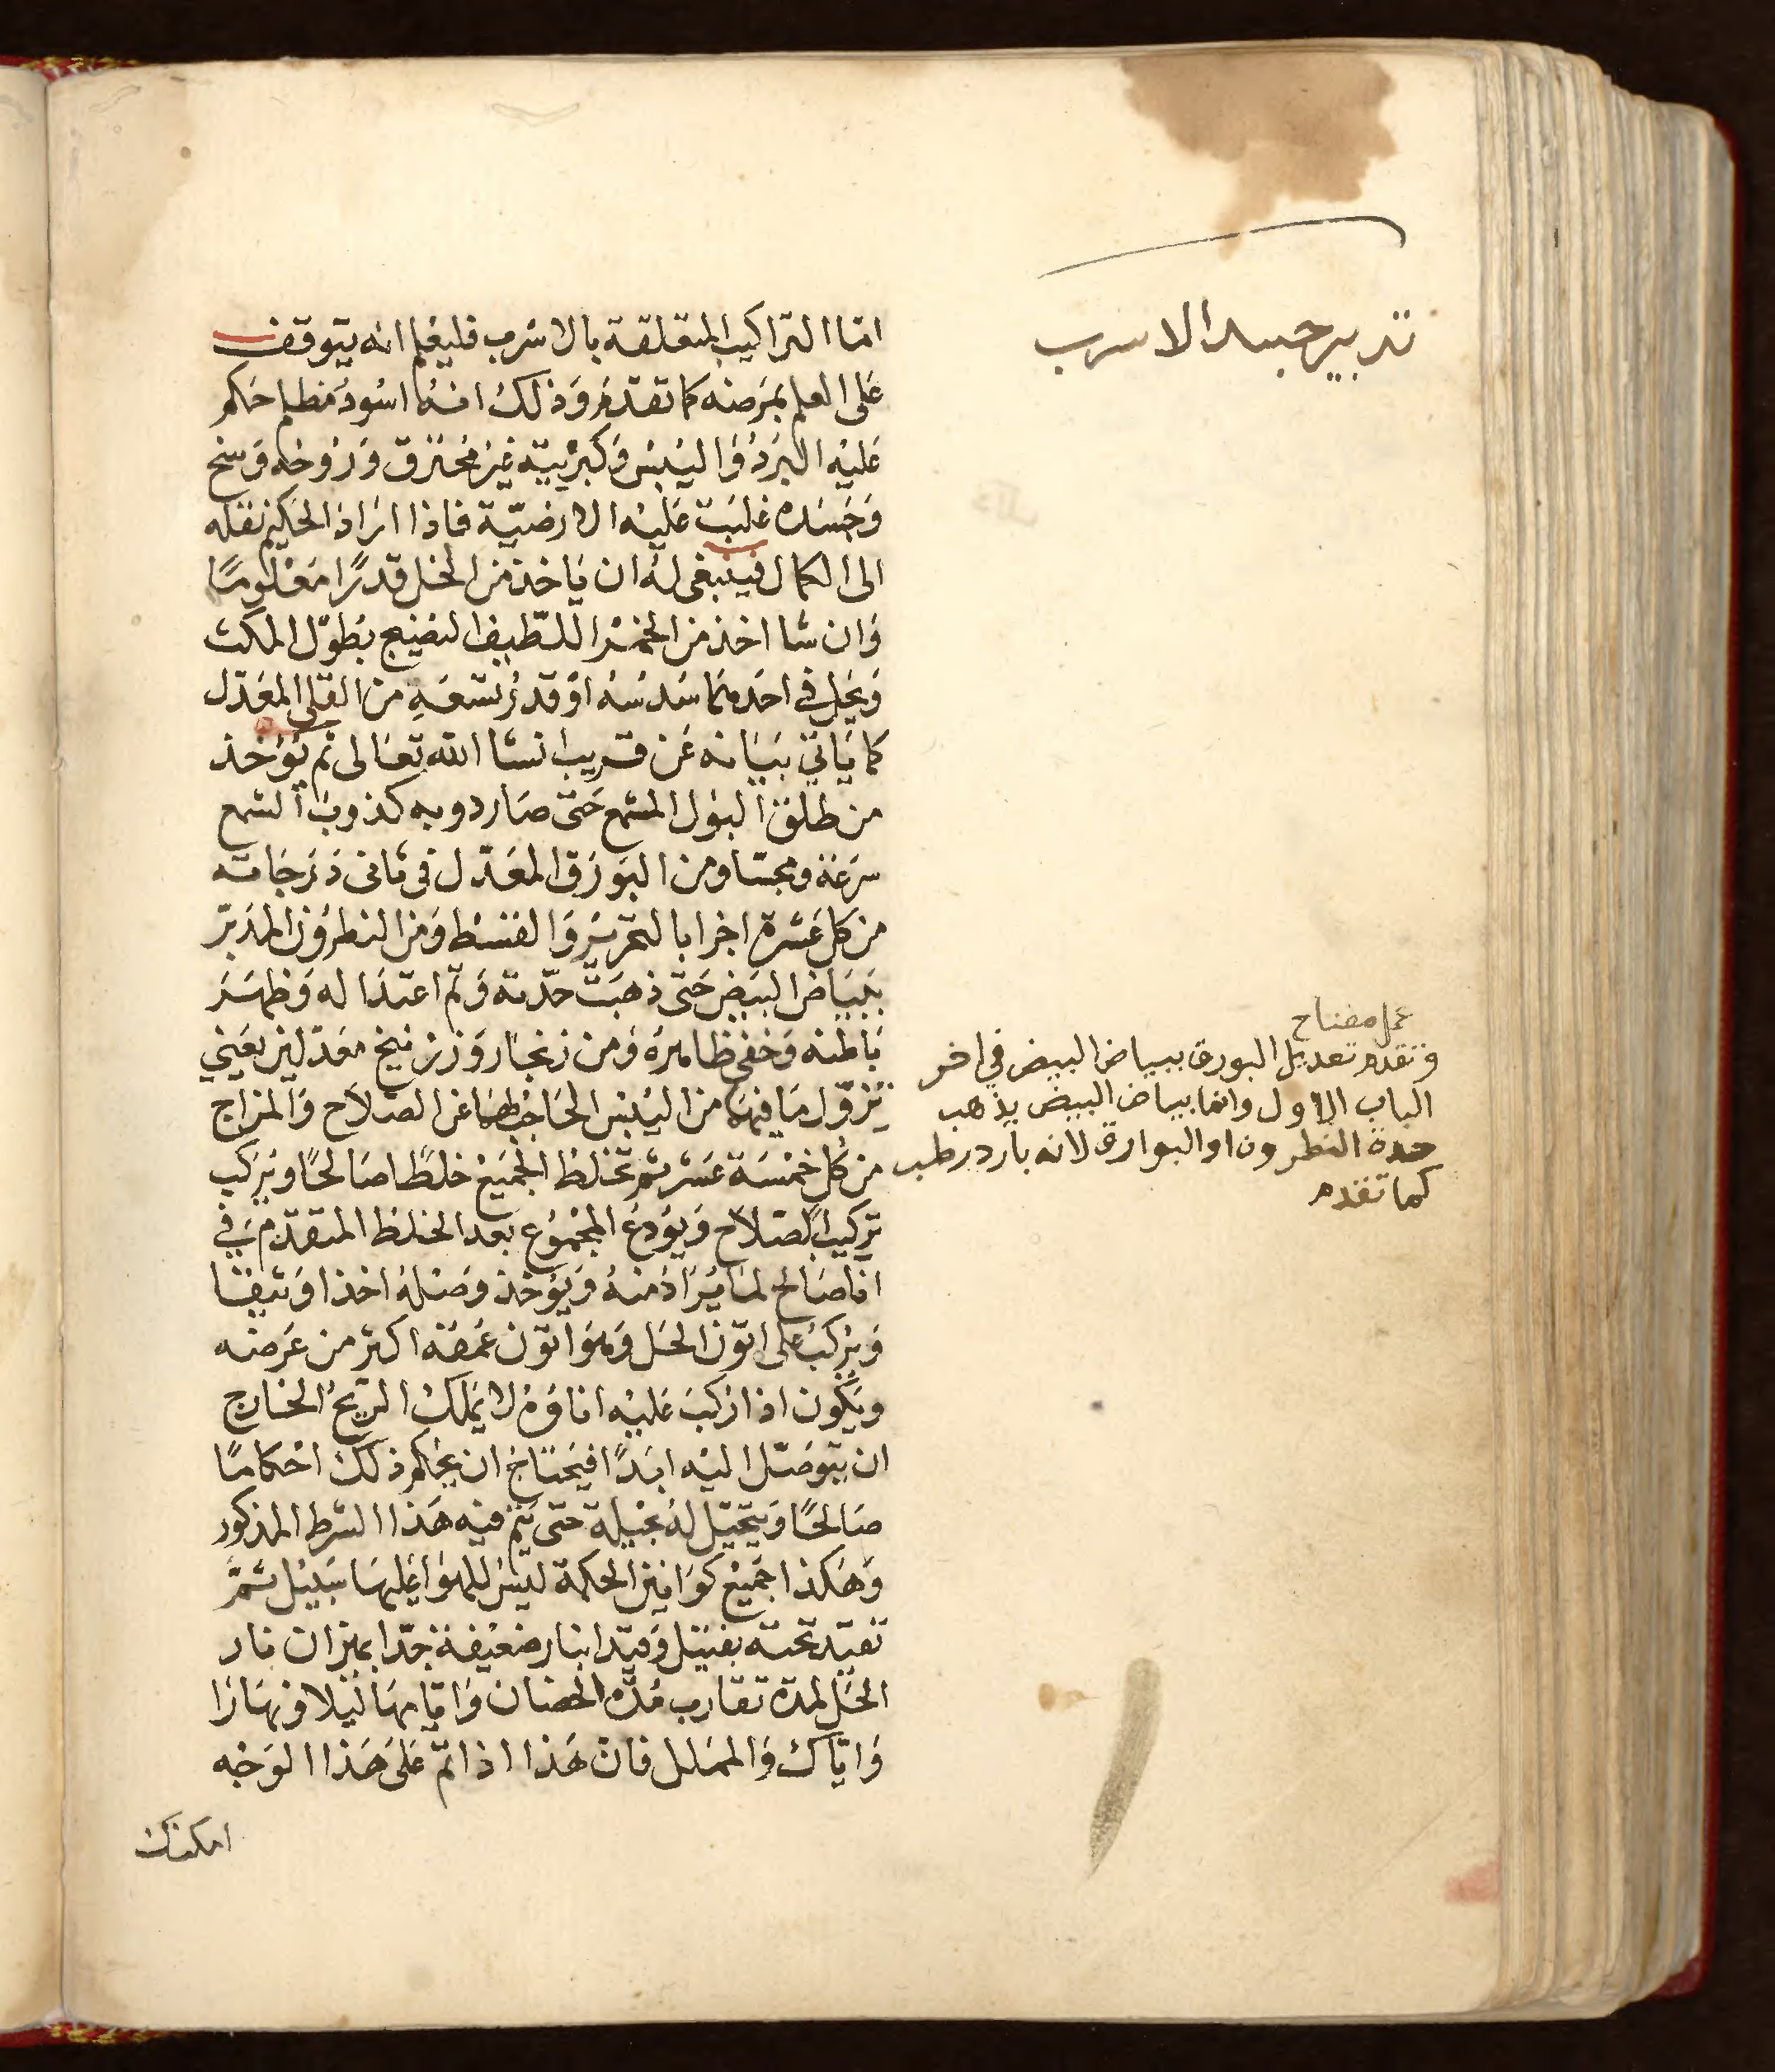 تدبير جسد الاسرب
اما التراكيب المتعلقة بالاسرب فليعلم انه يتوقف
على العلم بمرضه كما تقدم وذلك انه اسود مظلم احكم
عليه البرد واليبس وكبريتيته غير محترق وروحه وسخ
وجسده غلبت عليه الارضية فاذا اراد الحكيم نقله
الى الكمال فينبغى له ان ياخذ من الخل قدرًا معلومًا
وان شا اخذ من الخمر اللطيف النضيج بطول المكث
ويحل فى احدهما سدسه او قدر تسعه من القلى المعدل
كما ياتى بيانه عن قريب انشا الله تعالى ثم يوخذ
من طلق البول المشمع حتى صار دوبه كذوب الشمع
سرعة ومجسا ومن البورق المعدل فى ثانى درجاته
من كل عشرة اجزا بالتحرير والقسط ومن النطرون المدبر
ببياض البيض حتى ذهبت حدته وتم اعتداله وظهر
باطنه وخفى ظاهره ومن زنجار وزرنيخ معدلين يعنى
يزول ما فيهما من اليبس الحاجب لهما عن الصلاح والمزاج
من كل خمسة عشر ثم تخلط الجميع خلطًا صالحًا ويركب
تركيب الصلاح ويودع المجموع بعد الخلط المتقدم فى
انا صالح لما يراد منه ويوخذ وصله اخذا وثيقا
ويركب على اتون الحل وهو اتون عمقه اكثر من عرضه
ويكون اذا ركب عليه اناوه لا يملك الريح الخارج
ان يتوصل اليه ابدًا فيحتاج ان يحكم ذلك احكامًا
صالحًا ويتحيل له بحيلة حتى يتم فيه هذا الشرط المذكور
وهكذا جميع كوانين الحكمة ليس للهوا عليها سبيل ثم
تقيد تحته بفتيل وقيدا بنار ضعيفة جدا بميزان نار
الحل لمدة تقارب مدة الحضان وايامها ليلا ونهارا
واياك والملل فان هذا اذا تم على هذا الوجه
امكنك
عمل مفتاح
وتقدم تعديل البورق ببياض البيض فى اخر
الباب الاول وانما بياض البيض يذهب
حدة النطرون او البوارق لانه بارد رطب
كما تقدم